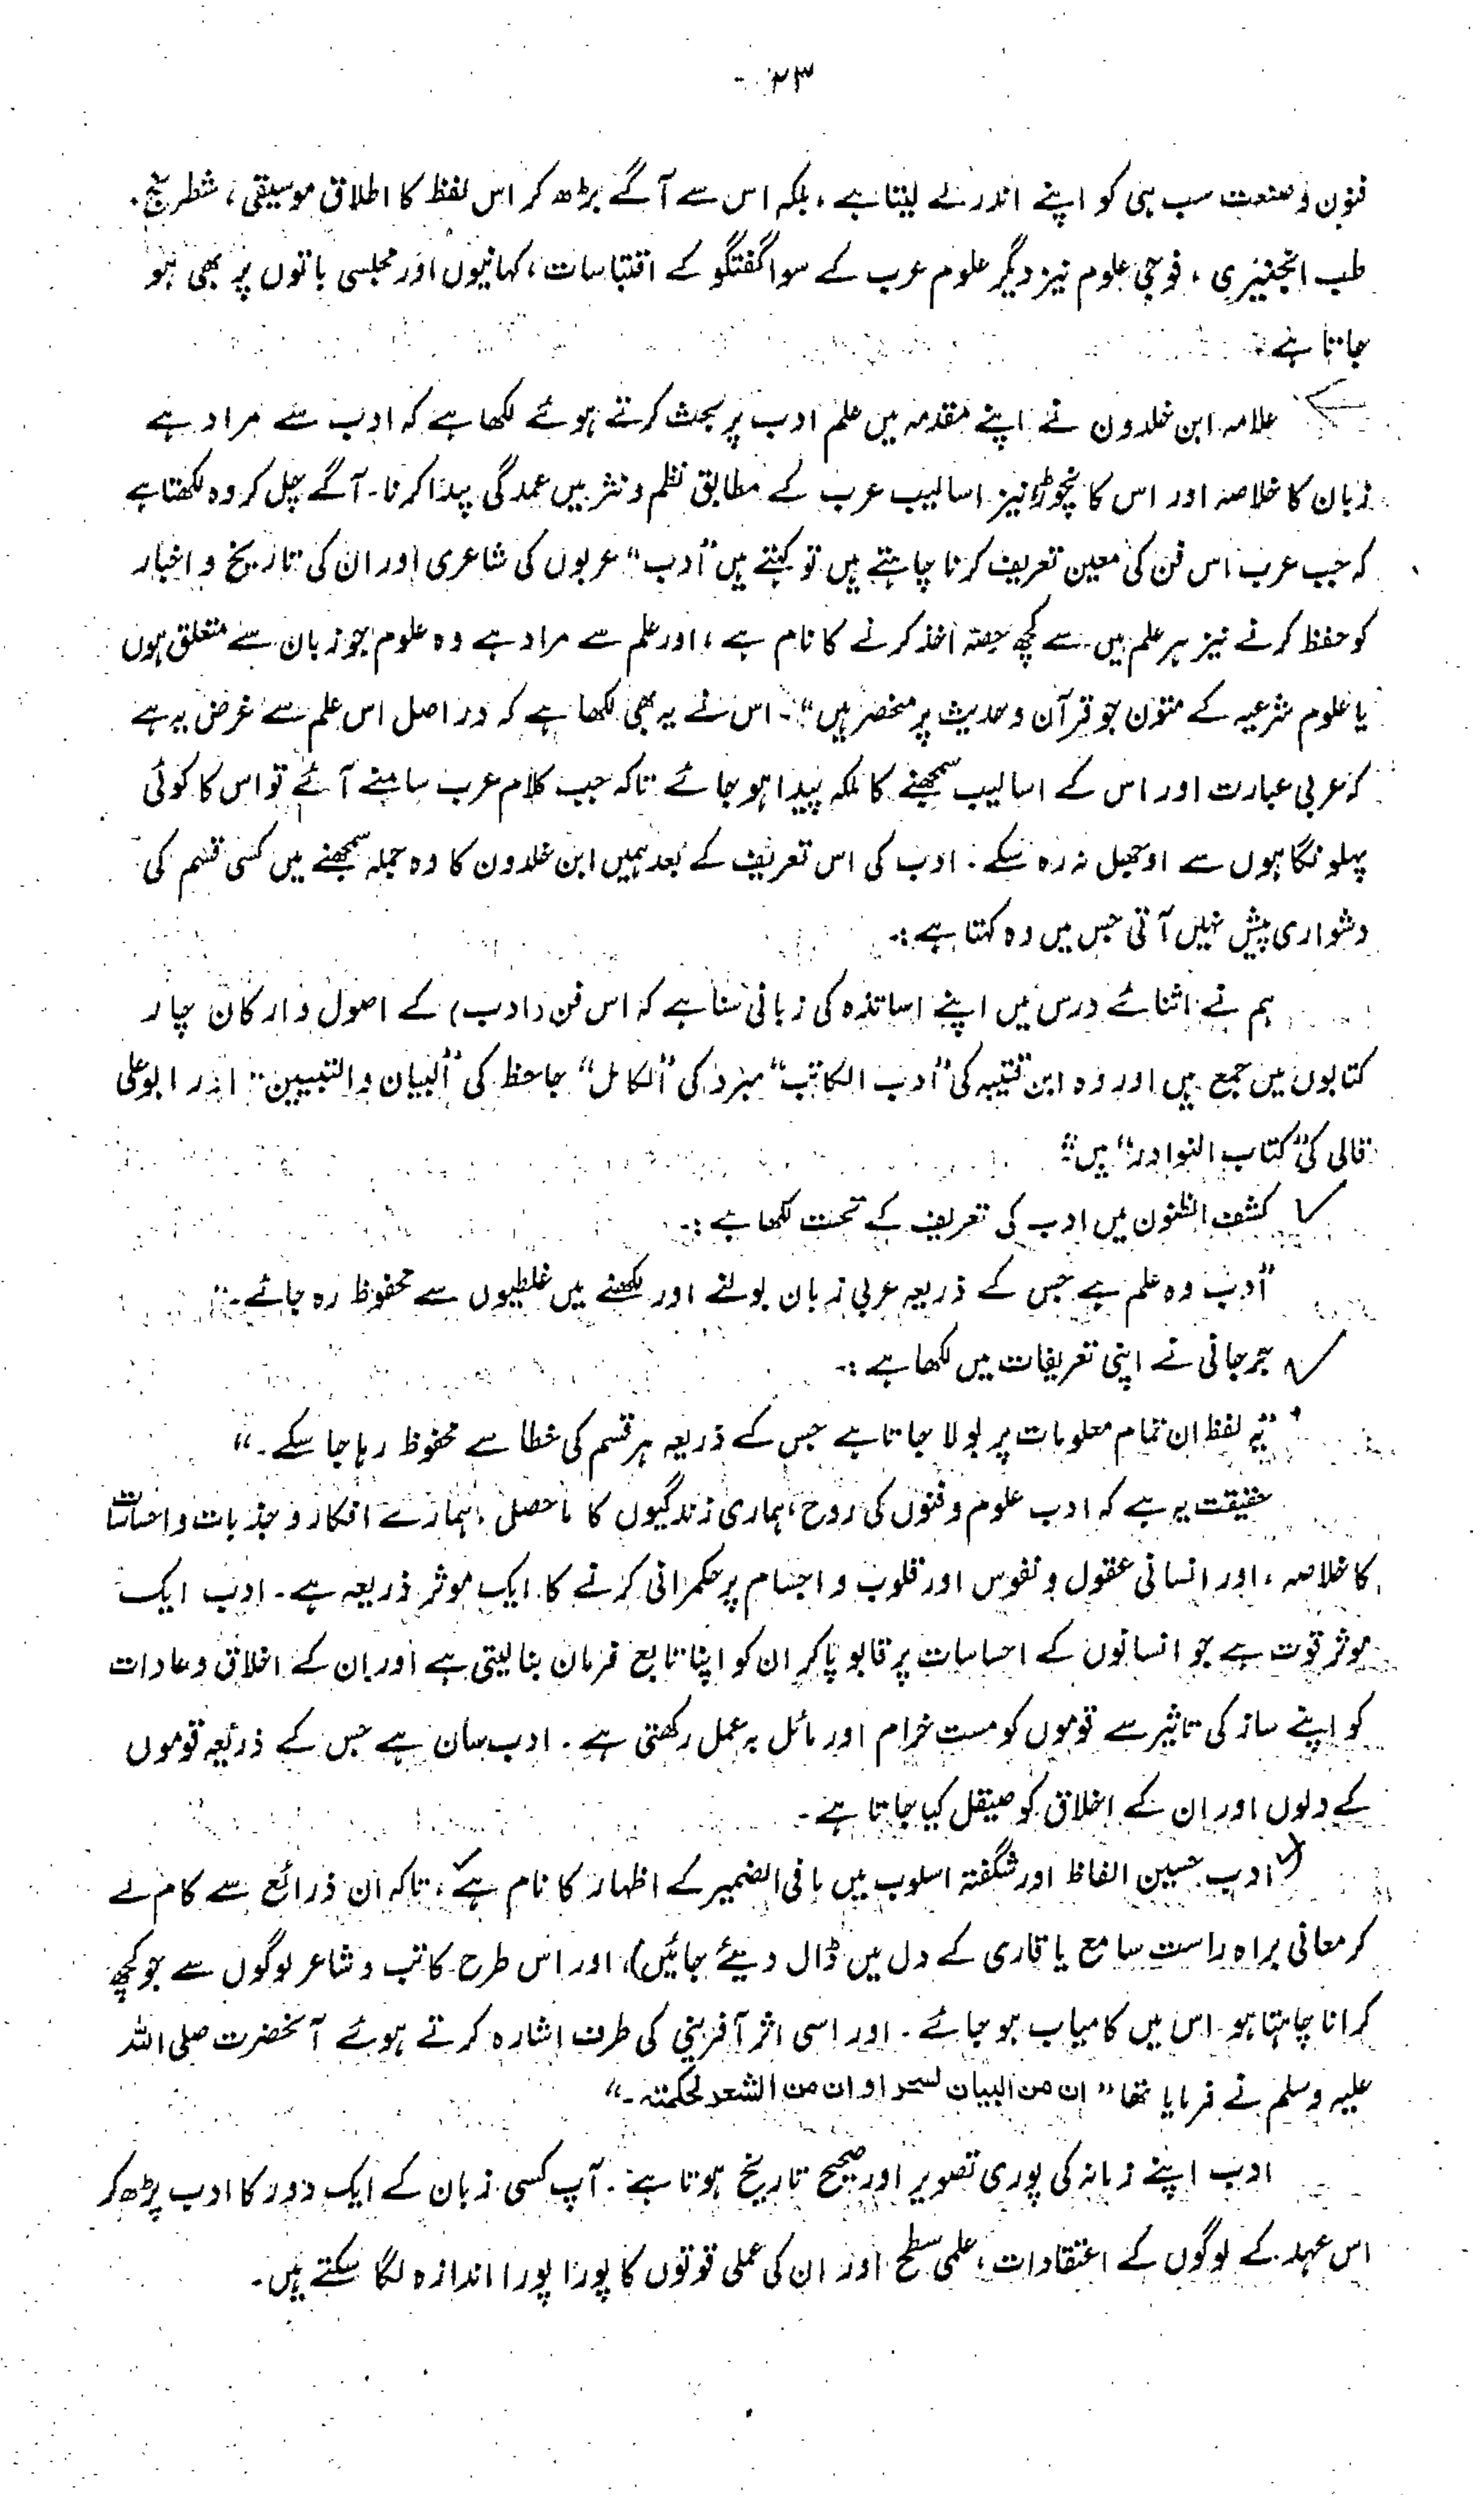 ۲۳ -
فنون و صنعت سب ہی کو اپنے اندر لے لیتا ہے، بلکہ اس سے آگے بڑھ کر اس لفظ کا اطلاق موسیقی، شطرنج،
طب انجنیری، فوجی علوم نیز دیگر علوم عرب کے سوا گفتگو کے اقتباسات، کہانیوں اور مجلسی باتوں پر بھی ہو
جاتا ہے
علامہ ابن خلدون نے اپنے مقدمہ میں علم ادب پر بحث کرتے ہوئے لکھا ہے کہ ادب سے مراد ہے
زبان کا خلاصہ اور اس کا نچوڑ نیز اسالیب عرب کے مطابق نظم و نثر میں عمدگی پیدا کرنا۔ آگے چل کر وہ لکھتا ہے
کہ جب عرب اس فن کی معین تعریف کرنا چاہتے ہیں تو کہتے ہیں "ادب" عربوں کی شاعری اور ان کی تاریخ و اخبار
کو حفظ کرنے نیز ہر علم میں سے کچھ حصہ اخذ کرنے کا نام ہے، اور علم سے مراد ہے وہ علوم جو زبان سے متعلق ہوں
یا علوم شرعیہ کے متون جو قرآن و حدیث پر منحصر ہیں"۔ اس نے یہ بھی لکھا ہے کہ دراصل اس علم سے غرض یہ ہے
کہ عربی عبارت اور اس کے اسالیب سمجھنے کا ملکہ پیدا ہو جائے تاکہ جب کلام عرب سامنے آئے تو اس کا کوئی
پہلو نگاہوں سے اوجھل نہ رہ سکے۔ ادب کی اس تعریف کے بعد ہمیں ابن خلدون کا وہ جملہ سمجھنے میں کسی قسم کی
دشواری پیش نہیں آتی جس میں وہ کہتا ہے:۔
ہم نے اثنائے درس میں اپنے اساتذہ کی زبانی سنا ہے کہ اس فن (ادب) کے اصول و ارکان چار
کتابوں میں جمع ہیں اور وہ ابن قتیبہ کی "ادب الکاتب" مبرد کی "الکامل" جاحظ کی "البیان والتبیین" اور ابو علی
قالی کی "کتاب النوادر" ہیں"
کشف الظنون میں ادب کی تعریف کے تحت لکھا ہے:۔
"ادب وہ علم ہے جس کے ذریعہ عربی زبان بولنے اور لکھنے میں غلطیوں سے محفوظ رہ جائے۔"
جرجانی نے اپنی تعریفات میں لکھا ہے:۔
"یہ لفظ ان تمام معلومات پر بولا جاتا ہے جس کے ذریعہ ہر قسم کی خطا سے محفوظ رہا جا سکے۔"
حقیقت یہ ہے کہ ادب علوم و فنون کی روح، ہماری زندگیوں کا ماحصل، ہمارے افکار و جذبات و احساسات
کا خلاصہ، اور انسانی عقول و نفوس اور قلوب و اجسام پر حکمرانی کرنے کا ایک موثر ذریعہ ہے۔ ادب ایک
موثر قوت ہے جو انسانوں کے احساسات پر قابو پا کر ان کو اپنا تابع فرمان بنا لیتی ہے اور ان کے اخلاق و عادات
کو اپنے ساز کی تاثیر سے قوموں کو مست خرام اور مائل بہ عمل رکھتی ہے۔ ادب سان ہے جس کے ذریعہ قوموں
کے دلوں اور ان کے اخلاق کو صیقل کیا جاتا ہے۔
(ادب حسین الفاظ اور شگفتہ اسلوب میں مافی الضمیر کے اظہار کا نام ہے، تاکہ ان ذرائع سے کام لے
کر معانی براہ راست سامع یا قاری کے دل میں ڈال دیئے جائیں)، اور اس طرح کاتب و شاعر لوگوں سے جو کچھ
کرانا چاہتا ہو اس میں کامیاب ہو جائے۔ اور اسی اثر آفرینی کی طرف اشارہ کرتے ہوئے آنحضرت صلی اللہ
علیہ وسلم نے فرمایا تھا "ان من البیان لسحرا و ان من الشعر لحکمتہ۔"
ادب اپنے زمانہ کی پوری تصویر اور صحیح تاریخ ہوتا ہے۔ آپ کسی زبان کے ایک دور کا ادب پڑھ کر
اس عہد کے لوگوں کے اعتقادات، علمی سطح اور ان کی عملی قوتوں کا پورا پورا اندازہ لگا سکتے ہیں۔